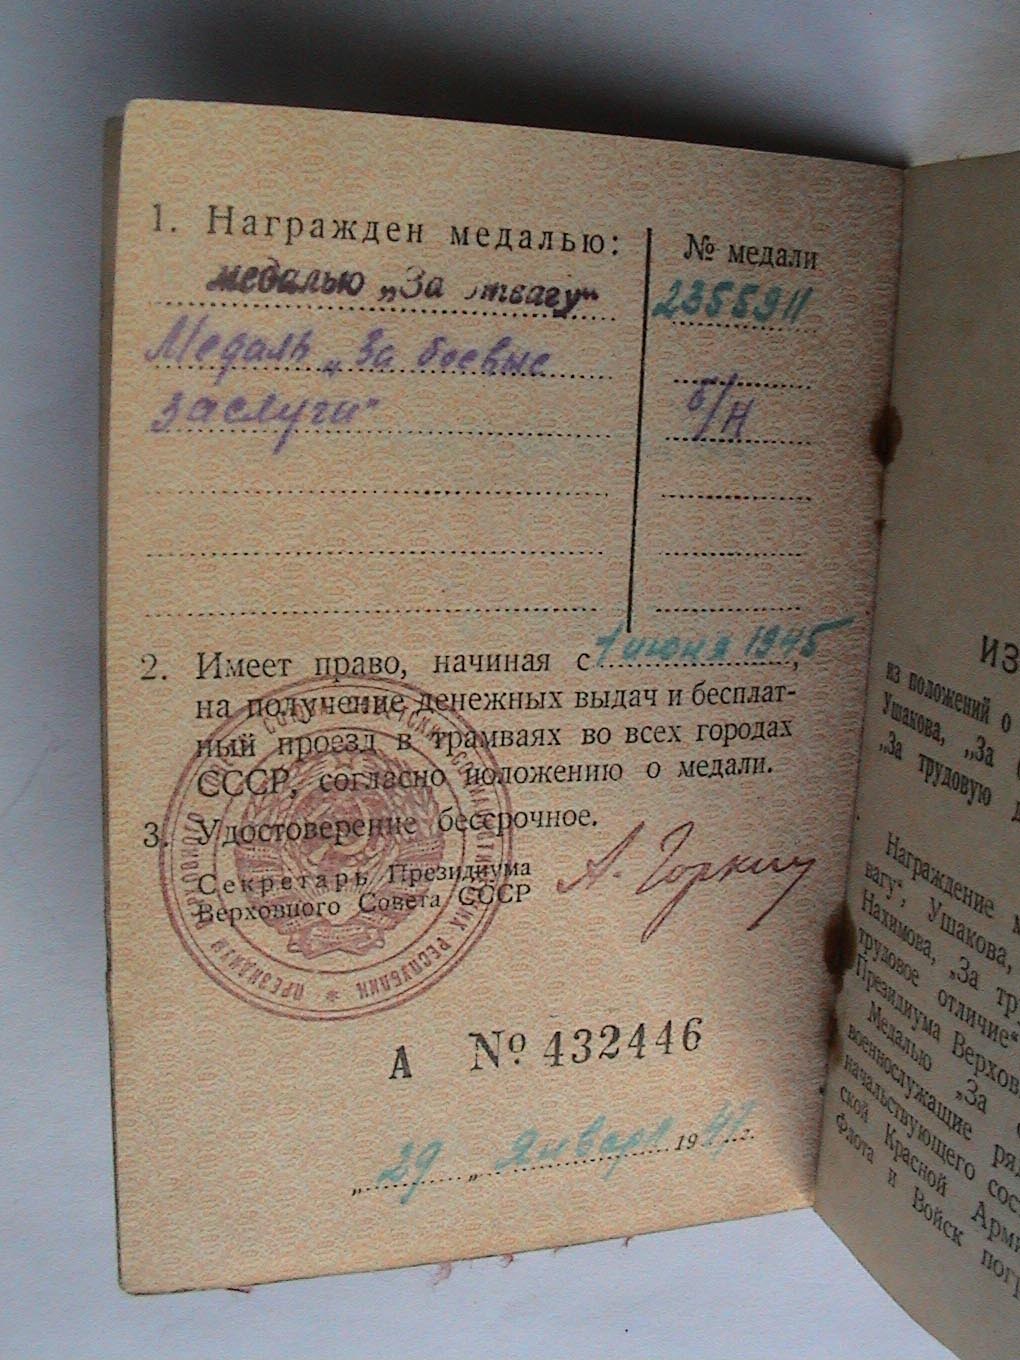 1. Награжден медалью:
№ медали
медалью „За отвагу“
2355911
Медаль „За боевые
заслуги“
б/н
2. Имеет право, начиная с 1 июня 1945,
на получение денежных выдач и бесплат-
ный проезд в трамваях во всех городах
СССР, согласно положению о медали.
3. Удостоверение бессрочное.
Секретарь Президиума
Верховного Совета СССР
А. Горкин
ПРЕЗИДИУМ ВЕРХОВНОГО
РЕСПУБЛИК
А № 432446
„29„ Января 1947 г.
ИЗ
из положений о
Ушакова, „За
„За трудовую
Награждение
вагу“, Ушакова,
Нахимова, „За
трудовое отличие“
Президиума
Медалью „За
военнослужащие
начальствующего
ской Красной
Флота и Войск